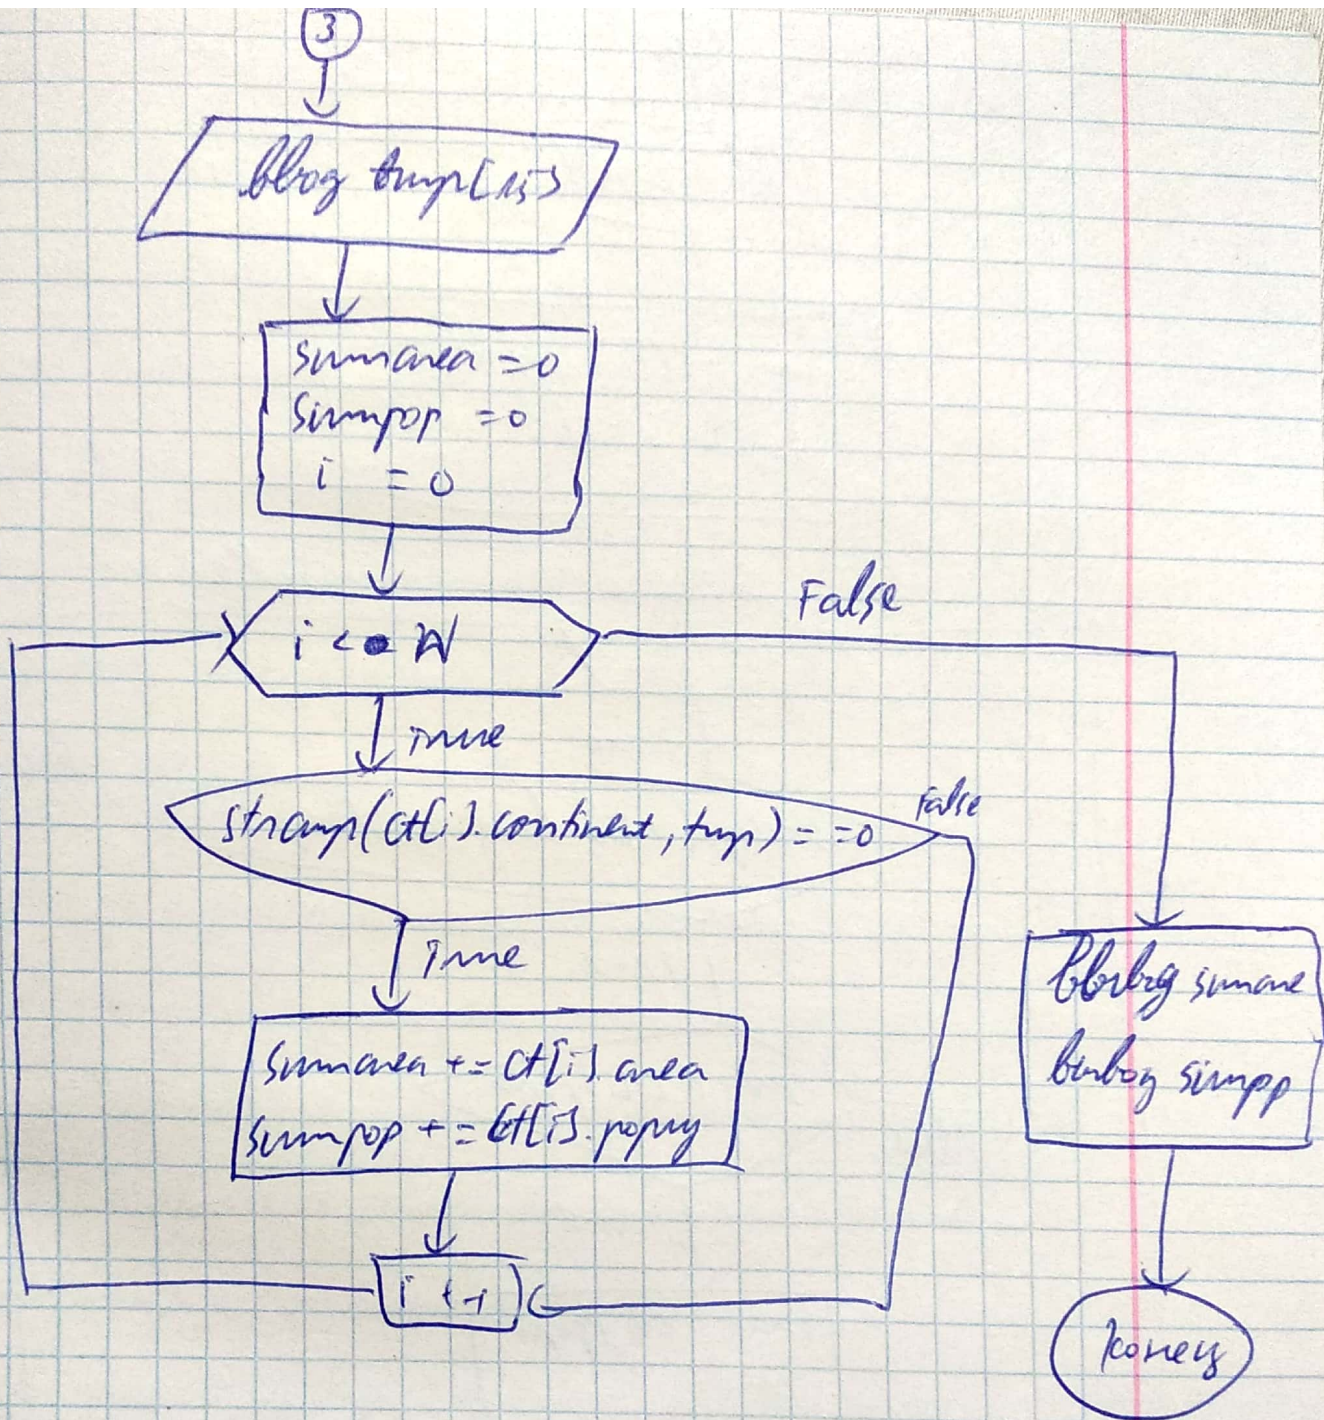 3
Ввод tmp[15]
sumarea = 0
sumpop = 0
i = 0
i < N
False
true
strcmp(ct[i].continent, tmp) == 0
False
true
sumarea += ct[i].area
sumpop += ct[i].popul
i+1
Вывод sumare
Вывод sumpp
Конец